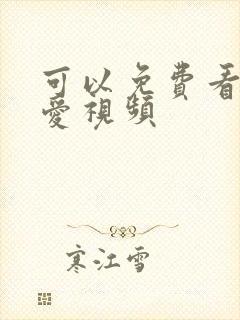 可以免費看
愛視頻
寒江雪